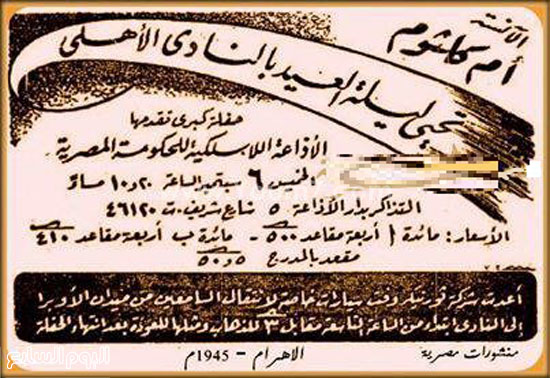 الآنسة
أم كلثوم
تحيى ليلة العيد بالنادى الأهلى
حفلة كبرى تقدمها
الأذاعة اللاسلكية للحكومة المصرية
الخميس ٦ سبتمبر الساعة ١٠٫٢٠ مساء
التذاكر بدار الأذاعة ٥ شارع شريف ت ٤٦١٢٠
الأسعار: مائدة أ أربعة مقاعد ٥٠٠ – مائدة ب أربعة مقاعد ٤١٠
مقعد بالمدرج ٥٠
أعدت شركة ثورنيكروفت سيارات خاصة لانتقال السامعين من ميدان الأوبرا
إلى النادى ابتداء من الساعة التاسعة مقابل ٣ للذهاب ومثلها للعودة بعد انتهاء الحفلة
منشورات مصرية الاهرام – 1945م
اليوم السابع